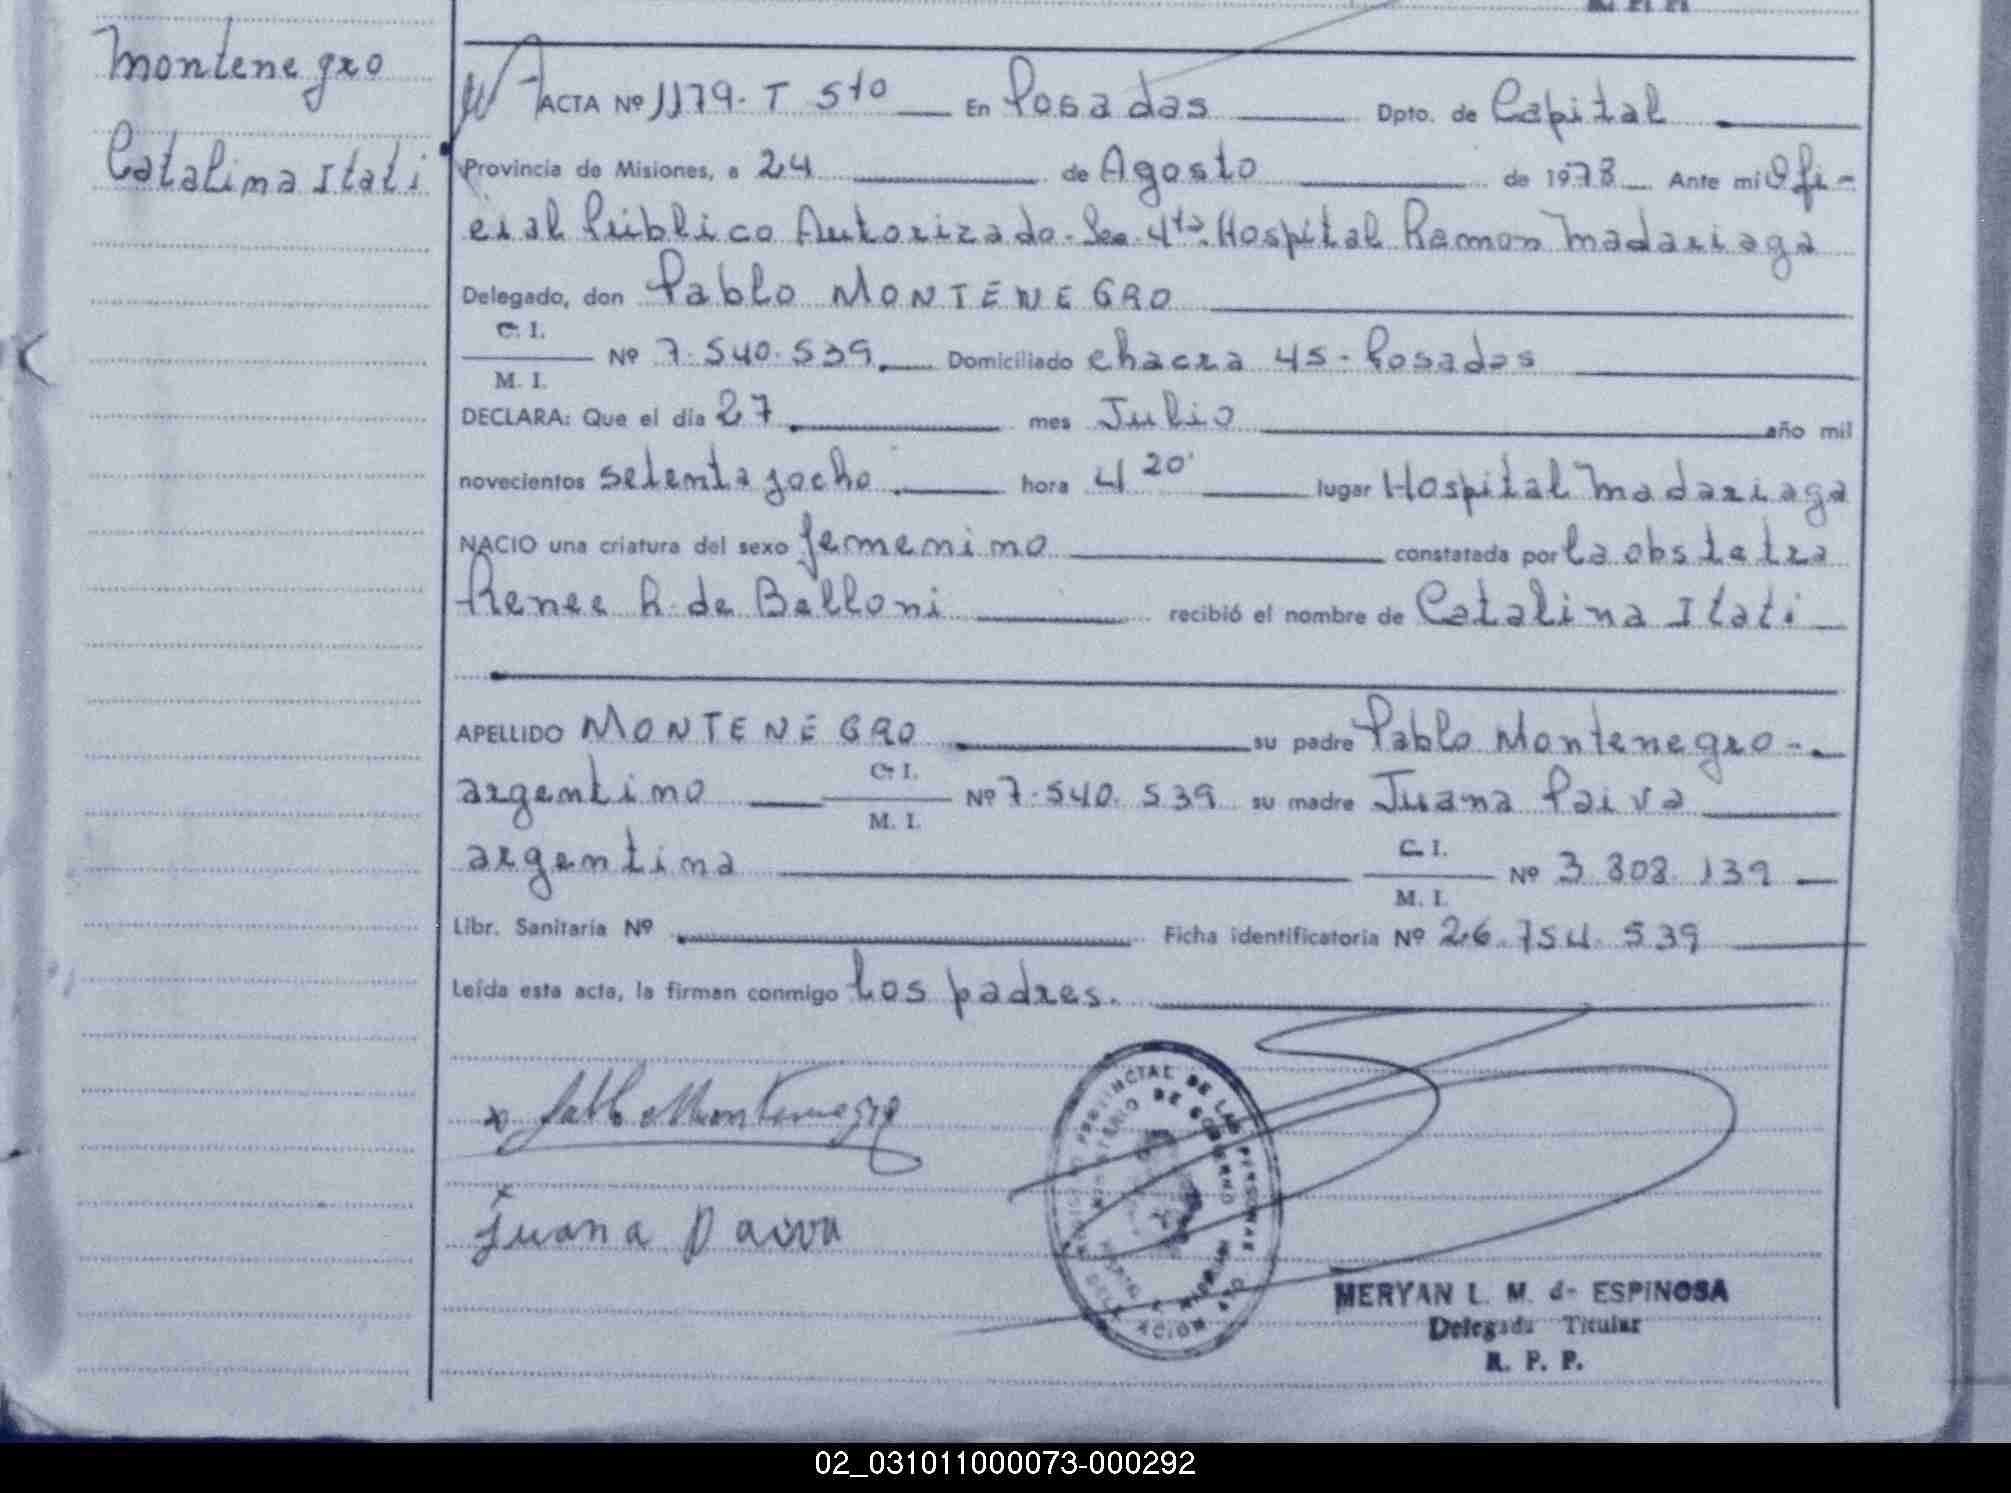 Montenegro
Catalina Itati
ACTA Nº 1179. T 5to En Posadas Dpto. de Capital
Provincia de Misiones, a 24 de Agosto de 1978 Ante mi Ofi-
cial Público Autorizado. Sec. 4ta. Hospital Ramon Madariaga
Delegado, don Pablo MONTENEGRO
C. I.
Nº 7.540.539. Domiciliado chacra 45 - Posadas
M. I.
DECLARA: Que el día 27 mes Julio año mil
novecientos setenta y ocho hora 4 20' lugar Hospital Madariaga
NACIO una criatura del sexo femenino constatada por la obstetra
Renee R. de Belloni recibió el nombre de Catalina Itati
APELLIDO MONTENEGRO su padre Pablo Montenegro-
argentino C. I. Nº 7.540.539 su madre Juana Paiva
M. I.
argentina C. I. Nº 3.808.139
M. I.
Libr. Sanitaria Nº Ficha identificatoria Nº 26.754.539
Leída esta acta, la firman conmigo los padres.
x Pablo Montenegro
x
Juana Paiva
PROVINCIAL DE LAS PERSONAS
MINISTERIO DE GOBIERNO
DELEGACION
MERYAN L. M. de ESPINOSA
Delegada Titular
R. P. P.
02_031011000073-000292